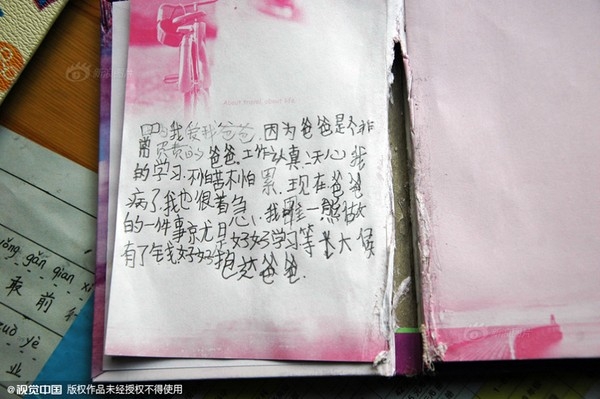 About friend, about life.
我爱我爸爸,因为爸爸是个非
常尽责的爸爸.工作认真.关心我
的学习.不怕苦不怕累.现在爸爸
病了我也很着急,我唯一能做
的一件事就是好好学习等长大候
有了钱好好报达爸爸.
ǒng gǎn qián x
敢 前
uò yè
业
@视觉中国 版权作品未经授权不得使用